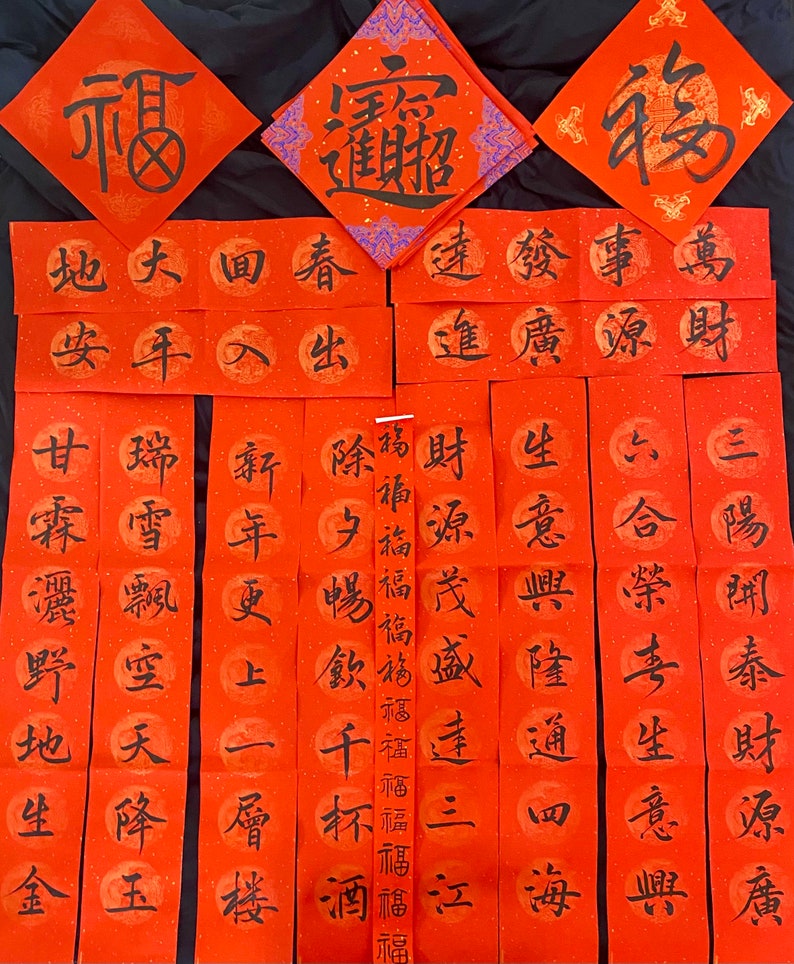 福
招財進寶
福
萬事發達
春回大地
財源廣進
出入平安
三陽開泰財源廣
六合榮春生意興
生意興隆通四海
財源茂盛達三江
福福福福福福福福福福福福福
除夕暢飲千杯酒
新年更上一層楼
瑞雪飄空天降玉
甘霖灑野地生金